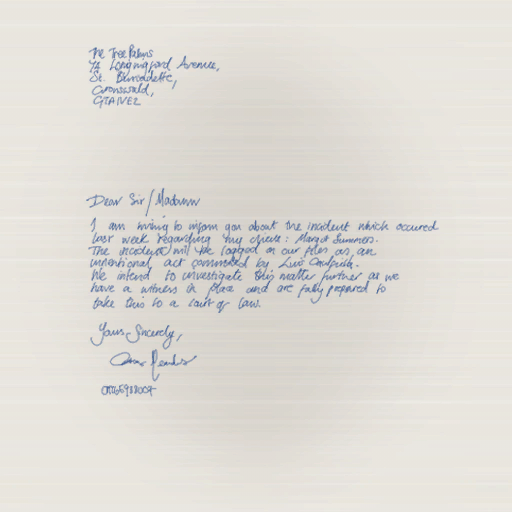 The Tree Palms
St. Bernadette,
Dear Sir/Madam
I am writing to inform you about the incident which occured
last week regarding my client: Margot Summers.
The incident will be logged on our files as an
intentional act committed by
We intend to investigate this matter further as we
have a witness in place and are fully prepared to
take this to a court of law.
Yours Sincerely,